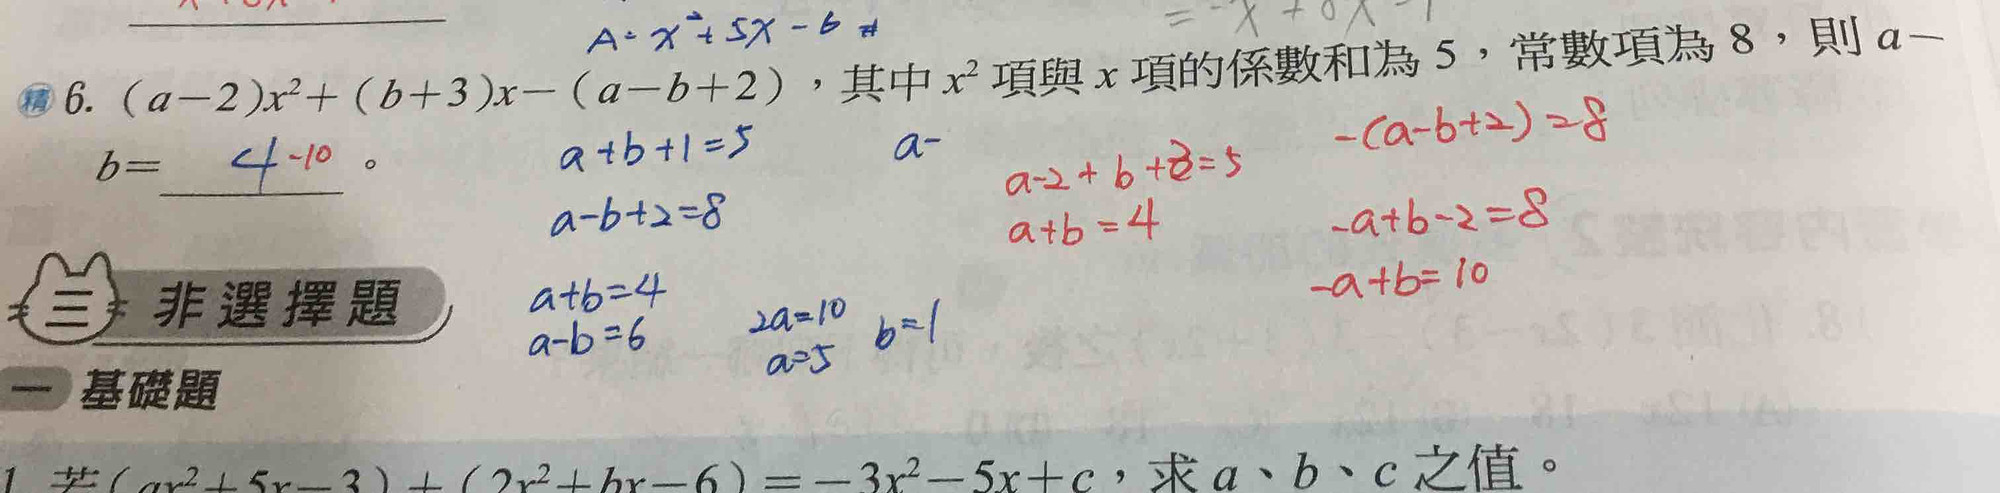 A=x²+5x-6 #
精 6. (a-2)x²+(b+3)x-(a-b+2),其中 x² 項與 x 項的係數和為 5,常數項為 8,則 a-
b= 4 -10 。
a+b+1=5
a-b+2=8
a+b=4
a-b=6
2a=10
a=5
b=1
a-
a-2+b+3=5
a+b=4
-(a-b+2)=8
-a+b-2=8
-a+b=10
三 非選擇題
一 基礎題
1. 若(ax²+5x-3)+(2x²+bx-6)=-3x²-5x+c,求 a、b、c 之值。